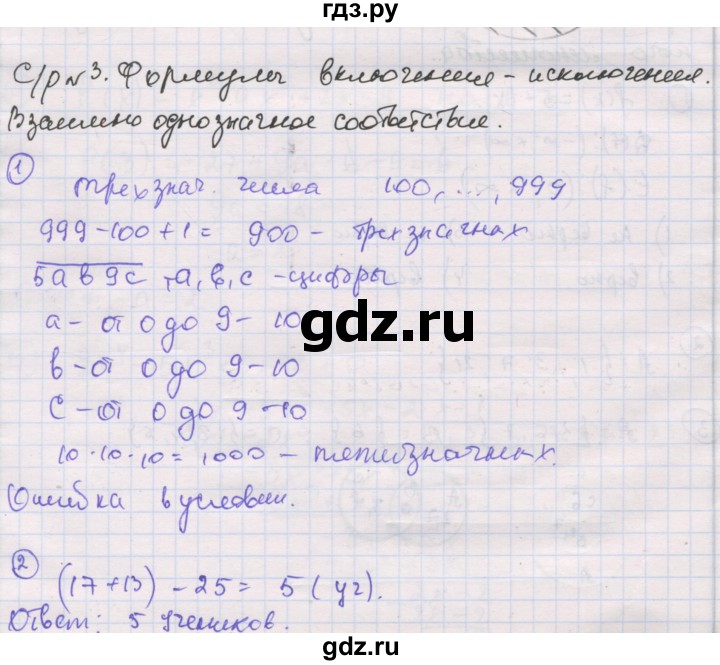 гдз.ру
С/р № 3. Формулы включения - исключения.
Взаимно однозначное соответствие.
1
трехзнач. числа 100, ..., 999
999-100+1= 900 - трехзначных
5ав9с, а, в, с - цифры
а - от 0 до 9 - 10
в - от 0 до 9 - 10
с - от 0 до 9 - 10
10·10·10 = 1000 - пятизначных.
Ошибка в условии.
2
(17+13) - 25 = 5 (уч).
Ответ: 5 учеников.
gdz.ru
gdz.ru